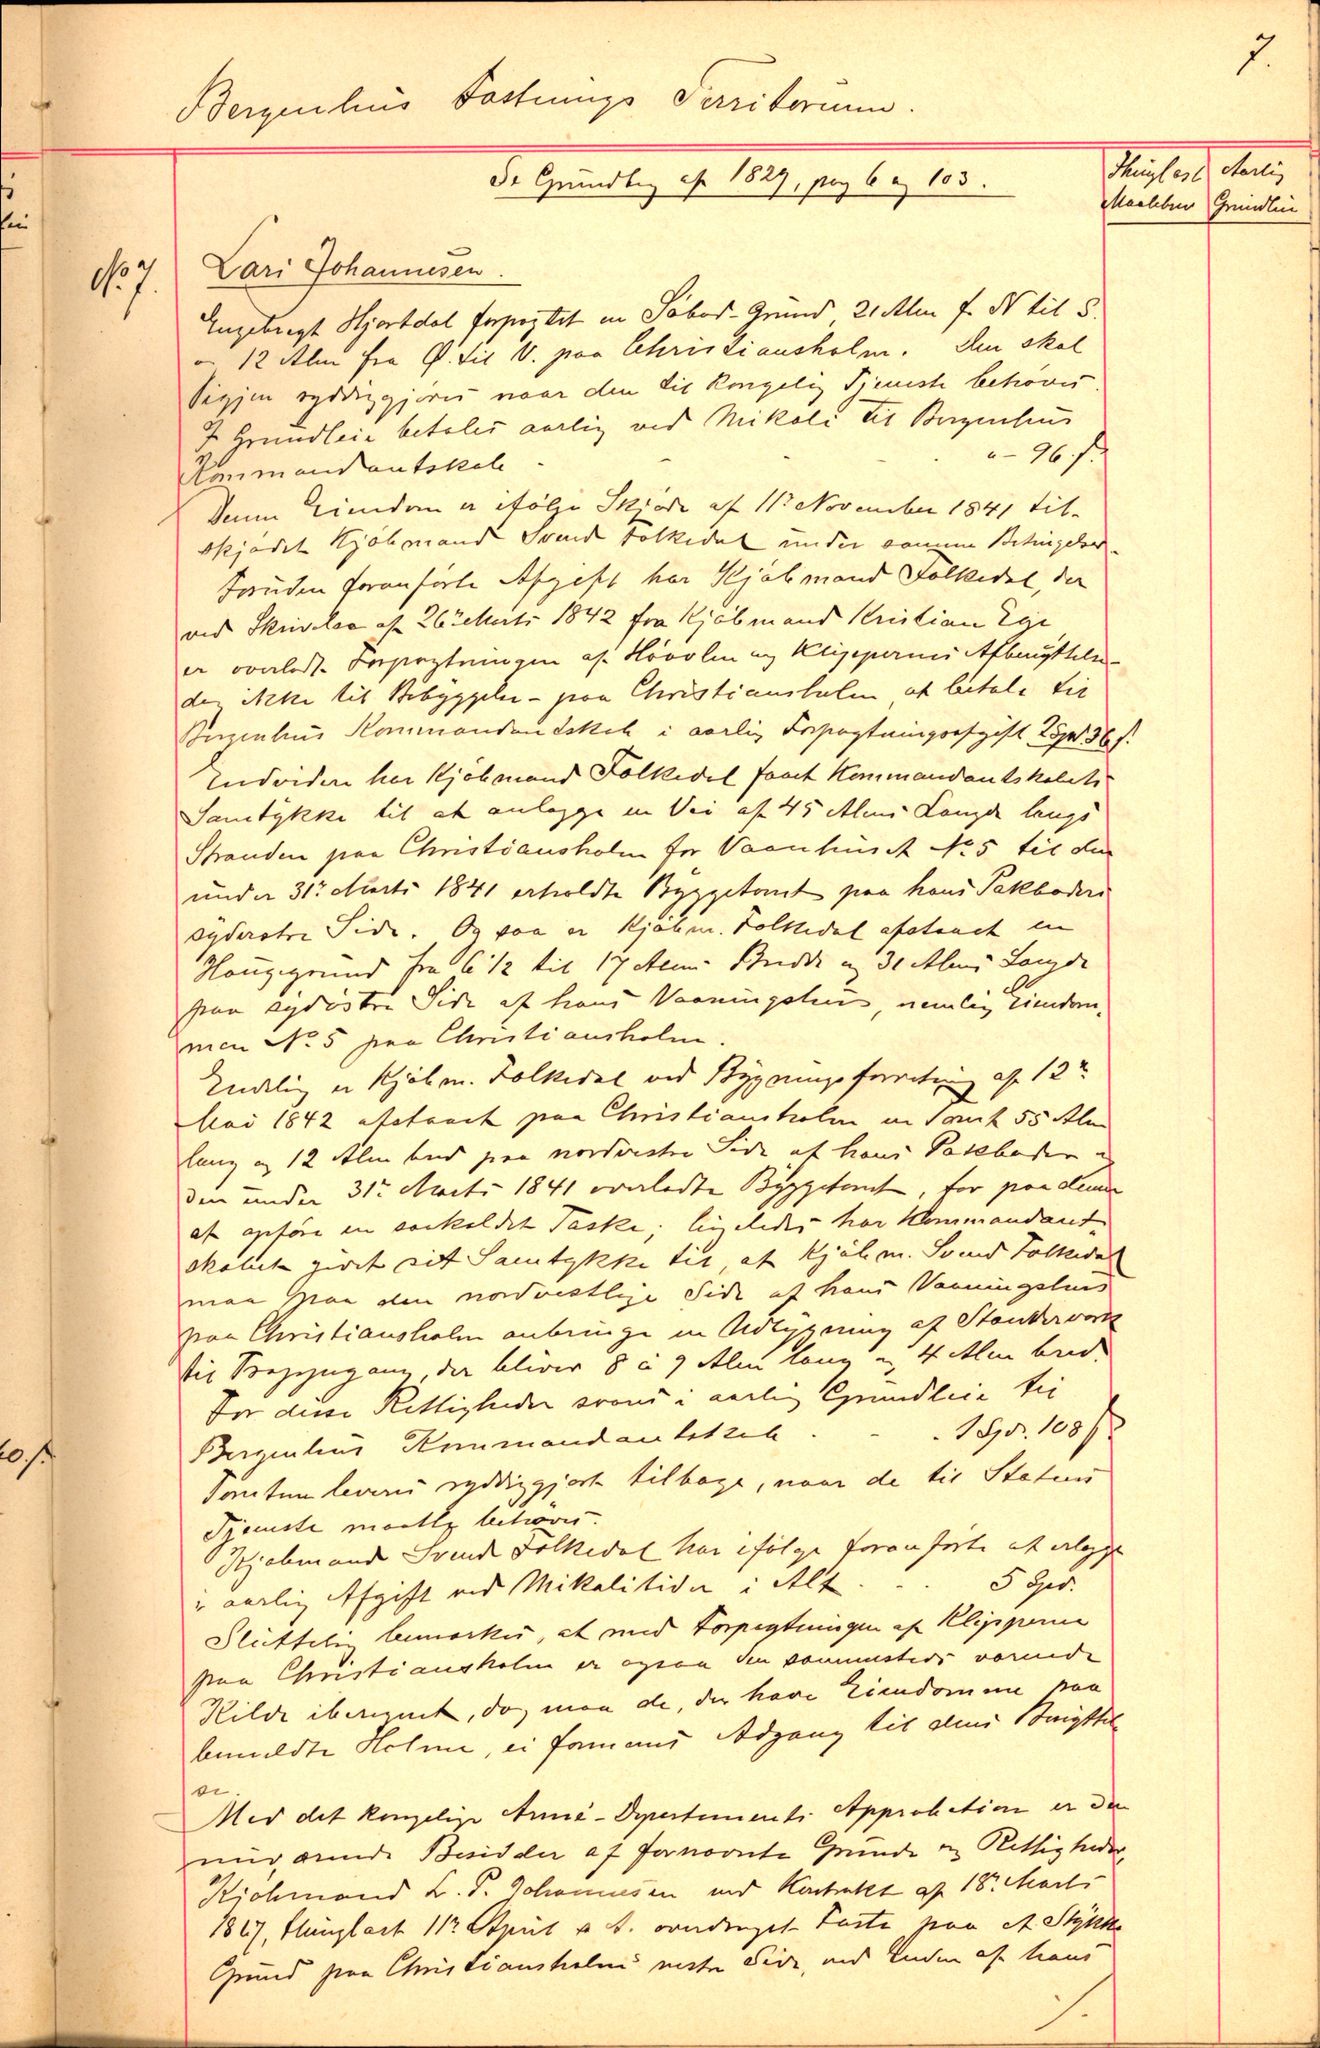 7.
Bergenhus Fæstnings Territorium.
Se Grundbog af 1829, pag 6 og 103.
Thinglæst Aarlig
Maalebrev Grundleie
No. 7. Lars Johannesen.
Engebregt Hjortdal forpagtet en Søbod-Grund, 21 Alen f. N til S.
og 12 Alen fra Ø. til V. paa Christiansholm. Den skal
ryddiggjøres naar den til kongelig Tjeneste behøves.
I Grundleie betales aarlig ved Mikali til Bergenhus
Kommandantskab - - - "- 96 s.
Denne Eiendom er ifølge Skjøde af 11te November 1841 til-
skjødet Kjøbmand Svend Folkedal under samme Betingelser.
Foruden foranførte Afgift har Kjøbmand Folkedal, der
ved Skrivelse af 26de Marts 1842 fra Kjøbmand Kristian Ege
er overladt Forpagtningen af Høvolen og Klippernes Afbenyttelse -
dog ikke til Bebyggelse - paa Christiansholm at betale til
Bergenhus Kommandantskab i aarlig Forpagtningsafgift 2 Spd. 36 s.
Endvidere har Kjøbmand Folkedal faaet Kommandantskabets
Samtykke til at anlægge en Vei af 45 Alens Længde langs
Stranden paa Christiansholm for Vaanhuset No. 5 til den
under 31te Marts 1841 erholdte Byggetomt paa hans Pakboders
syderstre Side. Og saa er Kjøbm. Folkedal afstaaet en
Haugegrund fra 6 1/2 til 17 Alens Bredde og 31 Alens Længde
paa sydøstre Side af hans Vaaningshus, nemlig Eiendom-
men No. 5 paa Christiansholm.
Endelig er Kjøbm. Folkedal ved Bygningsforretning af 12te
Mai 1842 afstaaet paa Christiansholm en Tomt 55 Alen
lang og 12 Alen bred paa nordvestre Side af hans Pakboder og
den under 31te Marts 1841 overladte Byggetomt, for paa denne
at opføre en saakaldet Taske; ligeledes har Kommandant-
skabet givet sit Samtykke til, at Kjøbm. Svend Folkedal
maa paa den nordvestlige Side af hans Vaaningshus
paa Christiansholm anbringe en Udbygning af Standerværk
til Trappegang, der bliver 8 à 9 Alen lang og 4 Alen bred.
For disse Rettigheder svares i aarlig Grundleie til
Bergenhus Kommandantskab . - . 1 Spd. 108 s.
Tomten leveres ryddiggjort tilbage, naar de til Statens
Tjeneste maatte behøves.
Kjøbmand Svend Folkedal har ifølge foranførte at erlægge
i aarlig Afgift ved Mikalitider i Alt . . . 5 Spd.
Sluttelig bemærkes, at med Forpagtningen af Klipperne
paa Christiansholm er ogsaa den sammesteds værende
Kilde iberegnet, dog maa de, der have Eiendomme paa
bemeldte Holme, ei formenes Adgang til dens Benyttel
se.
Med det kongelige Armé-Departements Approbation er den
nuværende Besidder af fornævnte Grunde og Rettigheder,
Kjøbmand L. P. Johannesen ved Kontrakt af 18de Marts
1867, thinglæst 11te April s. A. overdraget Fæste paa et Stykke
Grund paa Christiansholms vestre Side, ved Enden af hans
/.